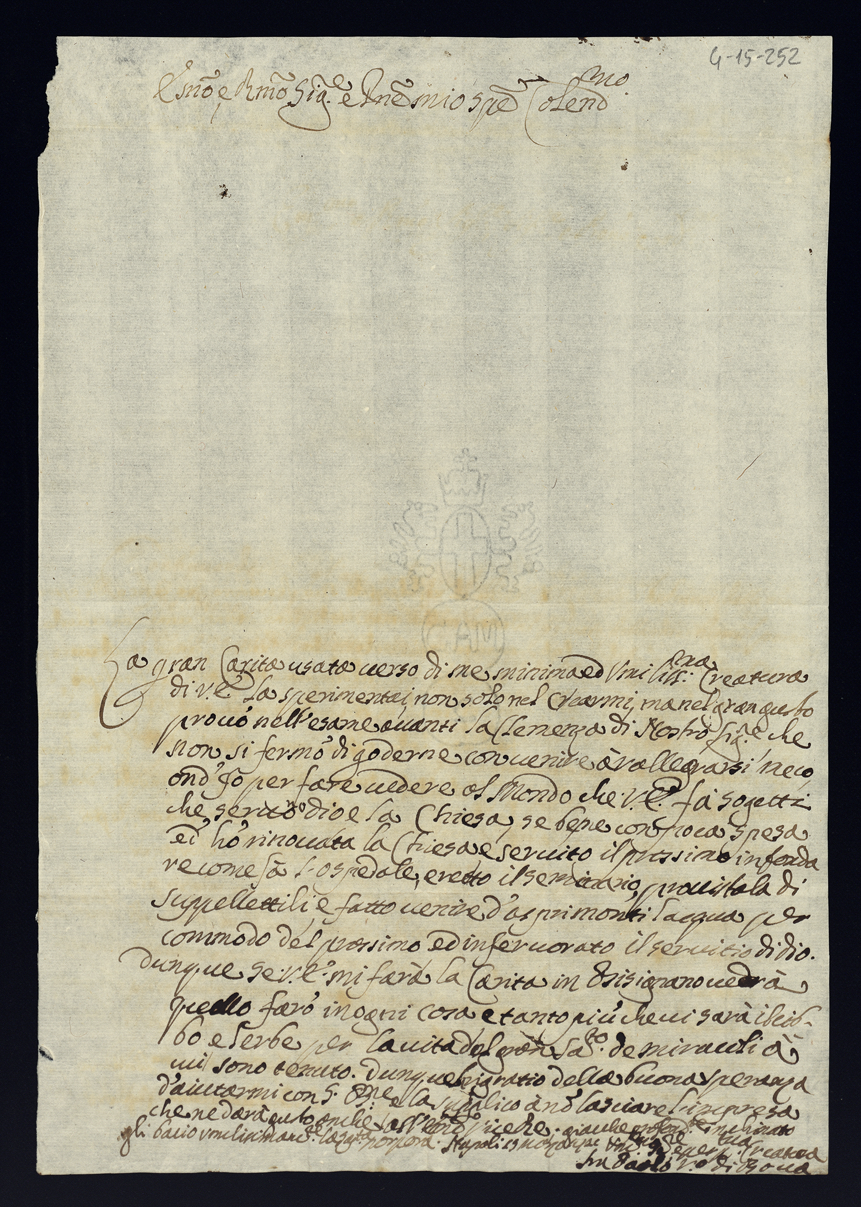 4-15-252
Emo e Rmo Sig.e e Pne mio Spe Colendmo.
La gran Carità usata verso di me minima ed Umiliss.ma Creatura
di V.E. la sperimentai non solo nel Crearmi, ma nel gran gusto
provò nell'esame avanti la Clemenza di Nostro Sig.re che
non si fermò di goderne con venire à rallegrarsi meco
ond'Jo per fare vedere al Mondo che V.E. fà sogetti
che servono dio e la Chiesa, se bene con poca spesa
ed hò rinovata la Chiesa e servito il prossimo in fonda
re come fà l'ospedale, eretto il seminario, provistala di
suppellettili e fatto venire d'asprimonti l'acqua per
commodo del prossimo ed infervorato il servitio di dio.
Dunque se V.E. mi farà la Carità in Bisignano vedrà
quello farò in ogni cosa e tanto più che vi sarà il cib-
bo e l'erbe per la vita del gran Sa.to de miracoli à
cui sono tenuto. Dunque ringratio della buona speranza
d'aiutarmi con S. e la supplico à nō lasciare l'impresa
che ne darà gusto anche Vicerè. inclinato
gli bacio Napoli
Creatura
fra Paolo V.o di Bova